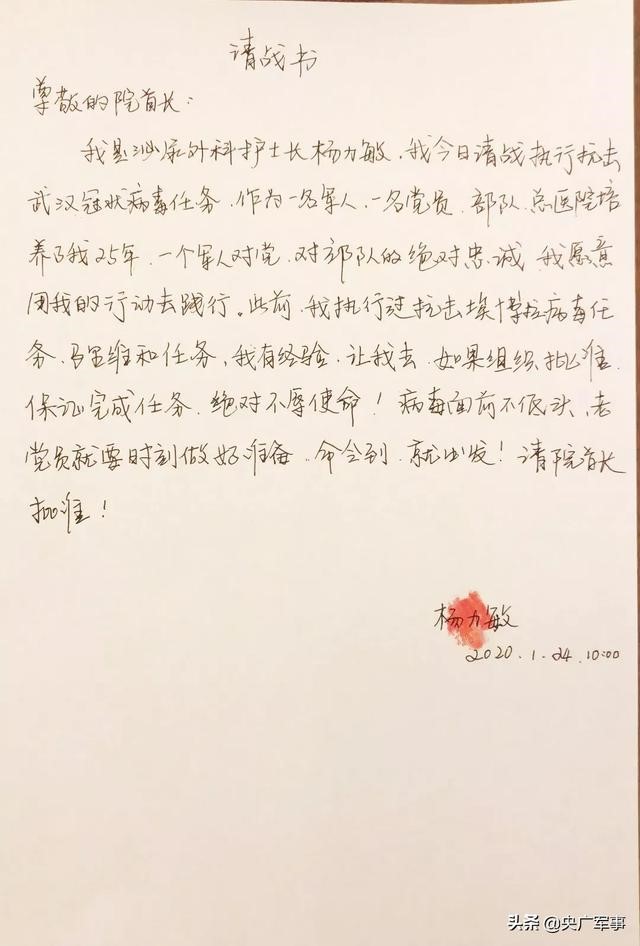 请战书
尊敬的院首长:
我是泌尿外科护士长杨力敏,我今日请战执行抗击
武汉冠状病毒任务,作为一名军人,一名党员,部队、总医院培
养了我25年,一个军人对党、对部队的绝对忠诚,我愿意
用我的行动去践行。此前,我执行过抗击埃博拉病毒任
务、马里维和任务,我有经验,让我去,如果组织批准,
保证完成任务,绝对不辱使命!病毒面前不低头,老
党员就要时刻做好准备,命令到,就出发!请院首长
批准!
杨力敏
2020.1.24.10:00
头条 @央广军事